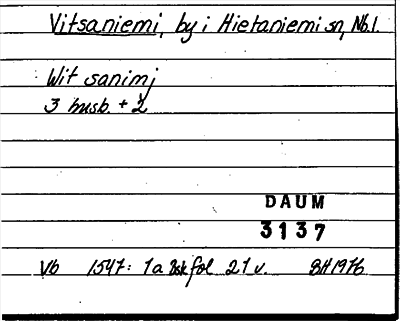 Vitsaniemi, by i Hietaniemi sn, Nb.l.
Wit sanimj
3 husb. + 2
DAUM
3137
Vb 1547: 1a fol 21 v. BH 1976